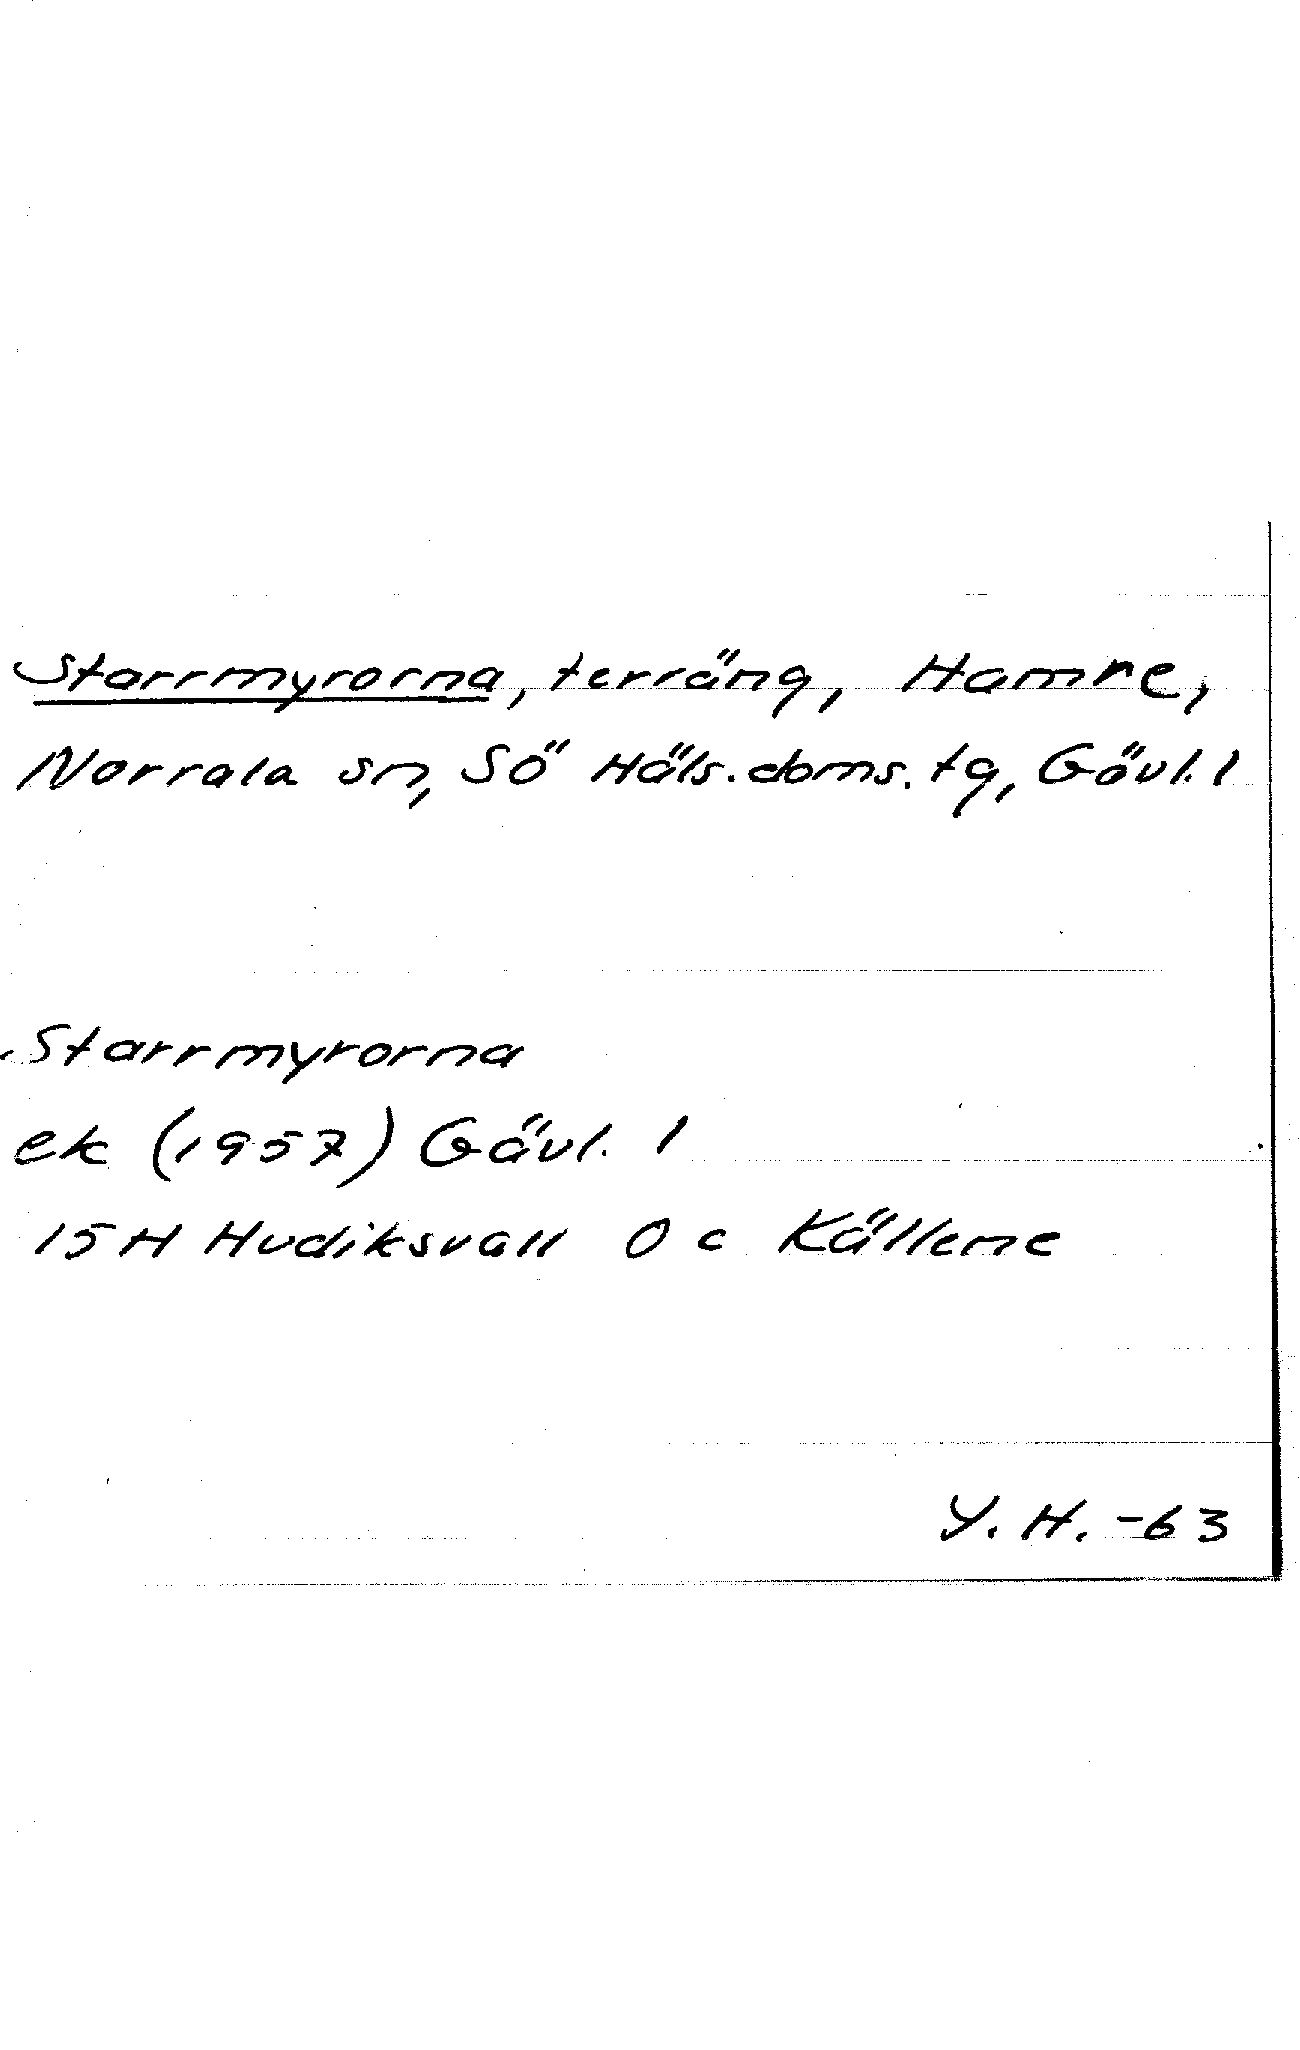 Starrmyrorna, terräng, Hamre,
Norrala sn, Sö Häls. doms. tg, Gävl. l
Starrmyrorna
ek (1957) Gävl. l
15H Hudiksvall 0 c Källene
Y. H. -63